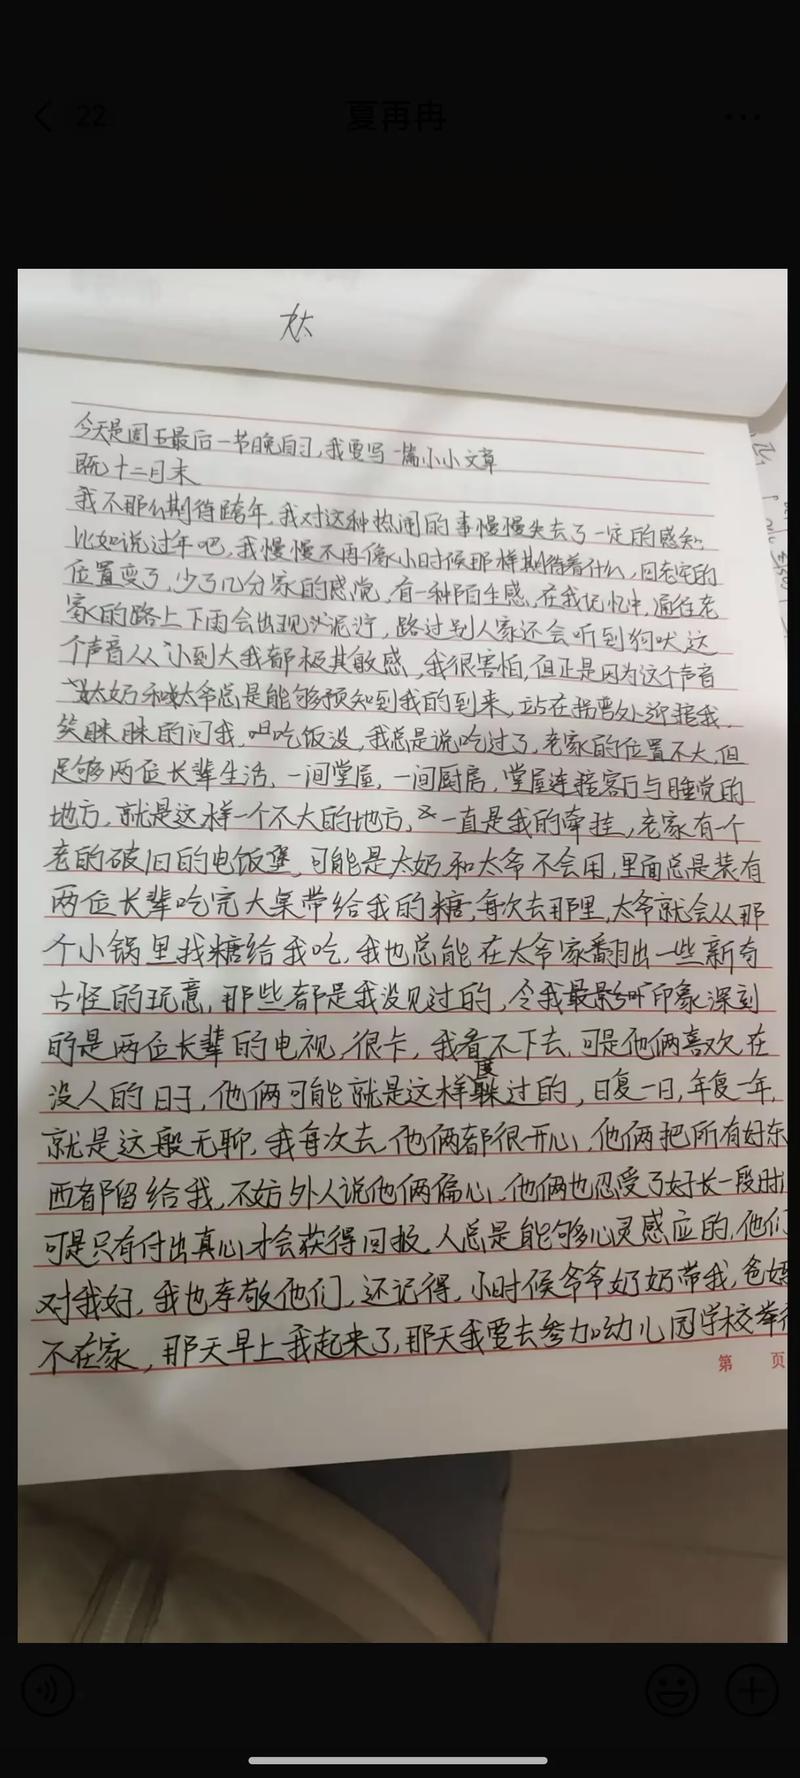 22
夏再冉
今天是周五最后一节晚自习,我要写一篇小小文章
既十二月末
我不那么期待跨年,我对这种热闹的事慢慢失去了一定的感知.
比如说过年吧,我慢慢不再像小时候那样期待着什么,回老宅的
位置变了,少了几分家的感觉,有一种陌生感,在我记忆中,通往老
家的路上下雨会出现泥泞,路过别人家还会听到狗吠,这
个声音从小到大我都极其敏感,我很害怕,但正是因为这个声音
太奶和太爷总是能够预知到我的到来,站在拐弯处迎接我.
笑眯眯的问我,吃饭没,我总是说吃过了,老家的位置不大,但
足够两位长辈生活,一间堂屋,一间厨房,堂屋连接客厅与睡觉的
地方,就是这样一个不大的地方,一直是我的牵挂,老家有一个
老的破旧的电饭煲,可能是太奶和太爷不会用,里面总是装有
两位长辈吃完大桌带给我的糖,每次去那里,太爷就会从那
个小锅里找糖给我吃,我也总能在太爷家翻出一些新奇
古怪的玩意,那些都是我没见过的,令我最影响印象深刻
的是两位长辈的电视,很卡,我看不下去,可是他俩喜欢,在
没人的日子,他俩可能就是这样度过的,日复一日,年复一年,
就是这般无聊,我每次去,他俩都很开心,他俩把所有好东
西都留给我,不妨外人说他俩偏心,他俩也忍受了好长一段时
可是只有付出真心才会获得回报,人总是能够心灵感应的,他们
对我好,我也孝敬他们,还记得,小时候爷爷奶奶带我,爸妈
不在家,那天早上我起来了,那天我要去参加幼儿园学校举行
第 页